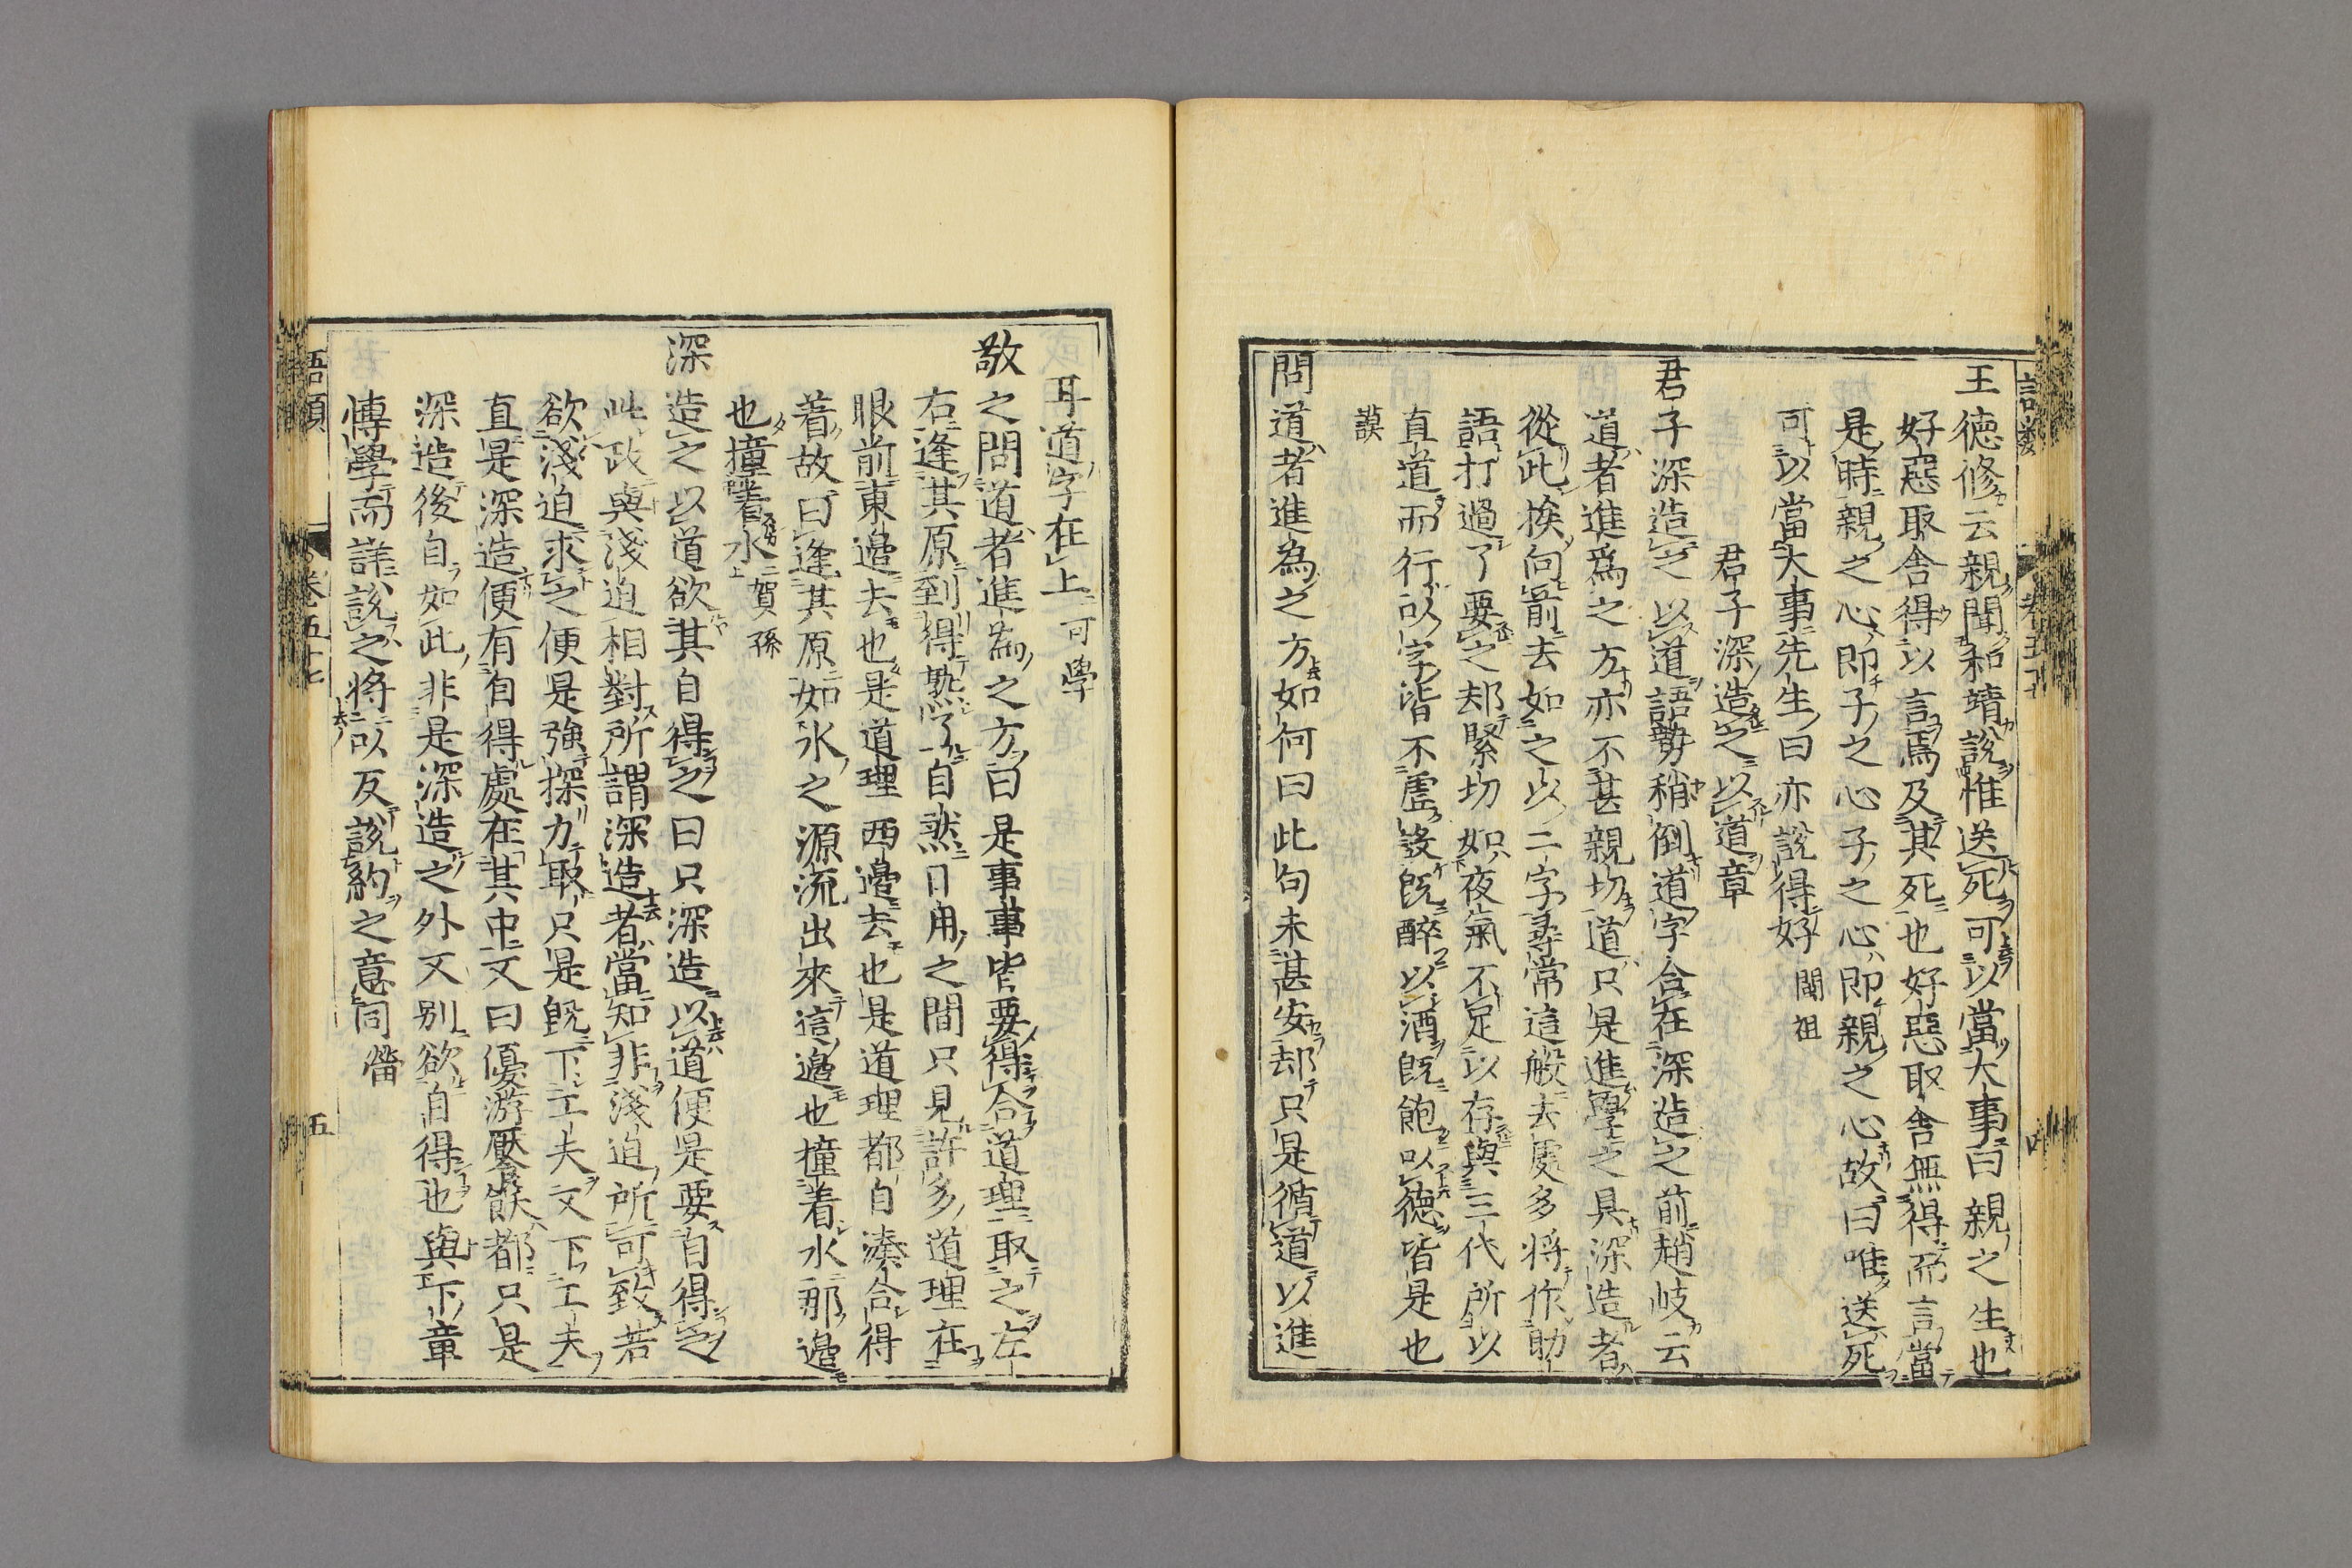 王德修云親聞和靖說惟送死可以當大事曰親之生也
好惡取舍得以言焉及其死也好惡取舍無得而言當
是時親之心即子之心子之心即親之心故曰唯送死
可以當大事先生曰亦說得好 閎祖
君子深造之以道章
君子深造之以道語勢稍倒道字合在深造之前趙岐云
道者進爲之方亦不甚親切道只是進學之具深造者
從此挨向前去如之以二字尋常這般去處多將作助
語打過了要之却緊切如夜氣不足以存與三代所以
直道而行以字皆不虛設既醉以酒既飽以德皆是也
謨
問道者進為之方如何曰此句未甚安却只是循道以進
耳道字在上 可學
敬之問道者進為之方曰是事事皆要得合道理取之左
右逢其原到得熟了自然日用之間只見許多道理在
眼前東邊去也是道理西邊去也是道理都自湊合得
着故曰逢其原如水之源流出來這邊也撞着水那邊
也撞着水 賀孫
深造之以道欲其自得之曰只深造以道便是要自得之
此政與淺迫相對所謂深造者當知非淺迫所可致若
欲淺迫求之便是強探力取只是既下工夫又下工夫
直是深造便有自得處在其中又曰優游饜飫都只是
深造後自如此非是深造之外又别欲自得也與下章
博學而詳說之將以反說約之意同 㽦
語類 卷五十七 五